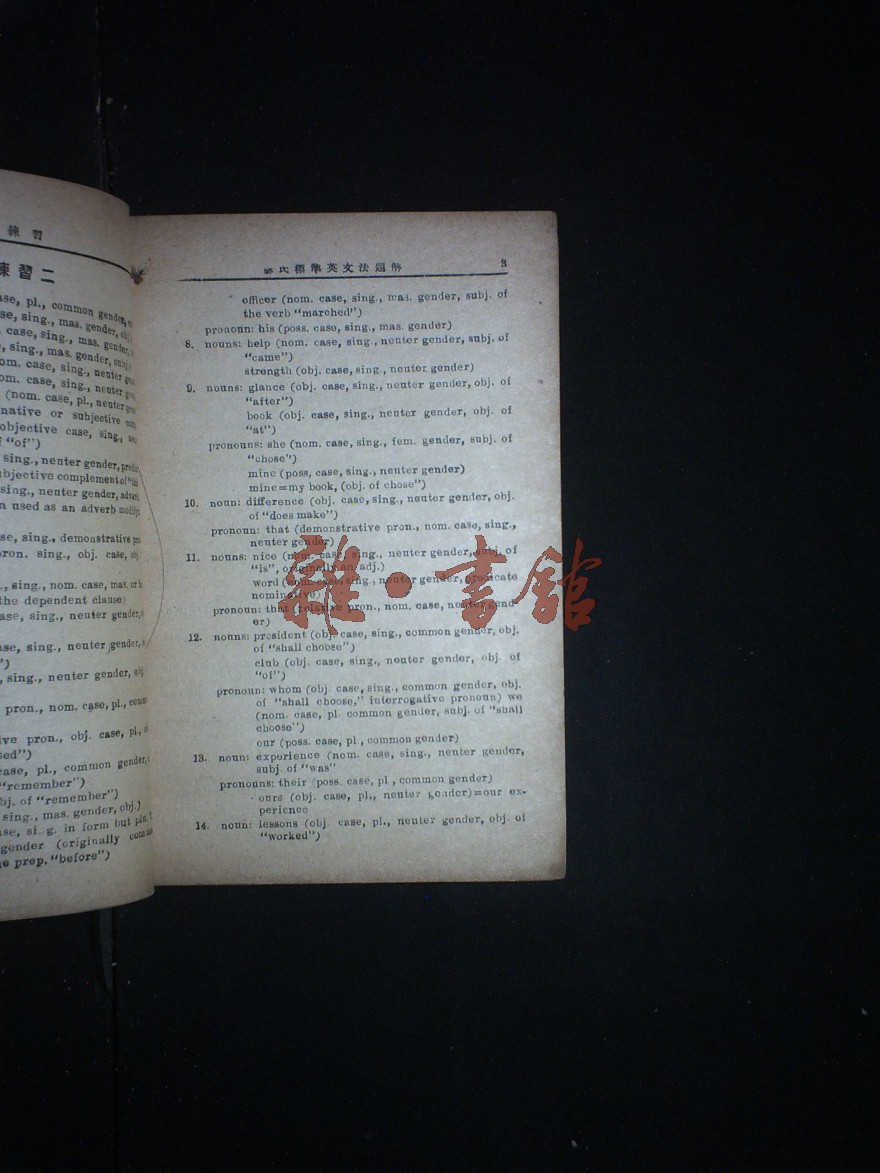 練習
練習二
ase, pl., common gender,
se, sing., mas. gender, obj
case, sing., mas. gender,
sing., mas. gender, subj
om. case, sing., neuter
om. case, sing., neuter
(nom. case, pl., neuter
native or subjective
objective case, sing.,
"of")
sing., neuter gender,
ubjective complement of
sing., neuter gender,
n used as an adverb
se, sing., demonstrative
pron. sing., obj. case,
., sing., nom. case, mas. or
the dependent clause)
ase, sing., neuter gender,
ase, sing., neuter gender,
")
, sing., neuter gender,
pron., nom. case, pl.,
ive pron., obj. case, pl.,
sed")
case, pl., common gender,
"remember")
bj. of "remember")
sing., mas. gender, obj.)
se, si g. in form but
gender (originally
e prep. "before")
氏標準英文法題解 3
officer (nom. case, sing., mas. gender, subj. of
the verb "marched")
pronoun: his (poss. case, sing., mas. gender)
8. nouns: help (nom. case, sing., neuter gender, subj. of
"came")
strength (obj. case, sing., neuter gender)
9. nouns: glance (obj. case, sing., neuter gender, obj. of
"after")
book (obj. case, sing., neuter gender, obj. of
"at")
pronouns: she (nom. case, sing., fem. gender, subj. of
"chose")
mine (poss, case, sing., neuter gender)
mine=my book, (obj. of chose")
10. noun: difference (obj. case, sing., neuter gender, obj.
of "does make")
pronoun: that (demonstrative pron., nom. case, sing.,
neuter gender)
11. nouns: nice (nom. case, sing., neuter gender, subj. of
"is", originally an adj.)
word (nom. case, sing., neuter gender, predicate
nominative)
pronoun: that (relative pron., nom. case, neuter gend-
er)
12. nouns: president (obj. case, sing., common gender, obj.
of "shall choose")
club (obj. case, sing., neuter gender, obj. of
"of")
pronoun: whom (obj. case, sing., common gender, obj.
of "shall choose," interrogative pronoun) we
(nom. case, pl. common gender, subj. of "shall
choose")
our (poss. case, pl., common gender)
13. noun: experience (nom. case, sing., neuter gender,
subj. of "was"
pronouns: their (poss. case, pl., common gender)
ours (obj. case, pl., neuter gender)=our ex-
perience
14. noun: lessons (obj. case, pl., neuter gender, obj. of
"worked")
雜·書館